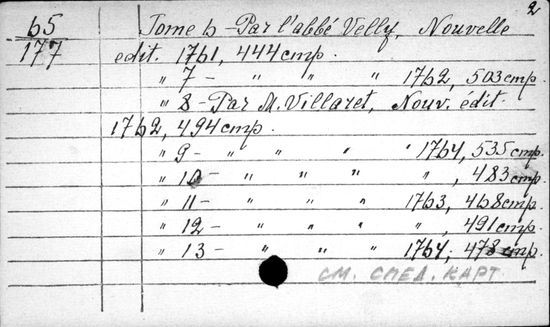 2
65 Tome 6 - Par l'abbé Velly, Nouvelle
177 edit. 1761, 444 стр.
" 7 - " " " 1762, 503 стр.
" 8 - Par M. Villaret, Nouv. édit.
1762, 494 стр.
" 9 - " " " " 1764, 535 стр.
" 10 - " " " " " , 483 стр.
" 11 - " " " 1763, 468 стр.
" 12 - " " " " , 491 стр.
" 13 - " " " 1764, 478 стр.
СМ. СЛЕД. КАРТ.